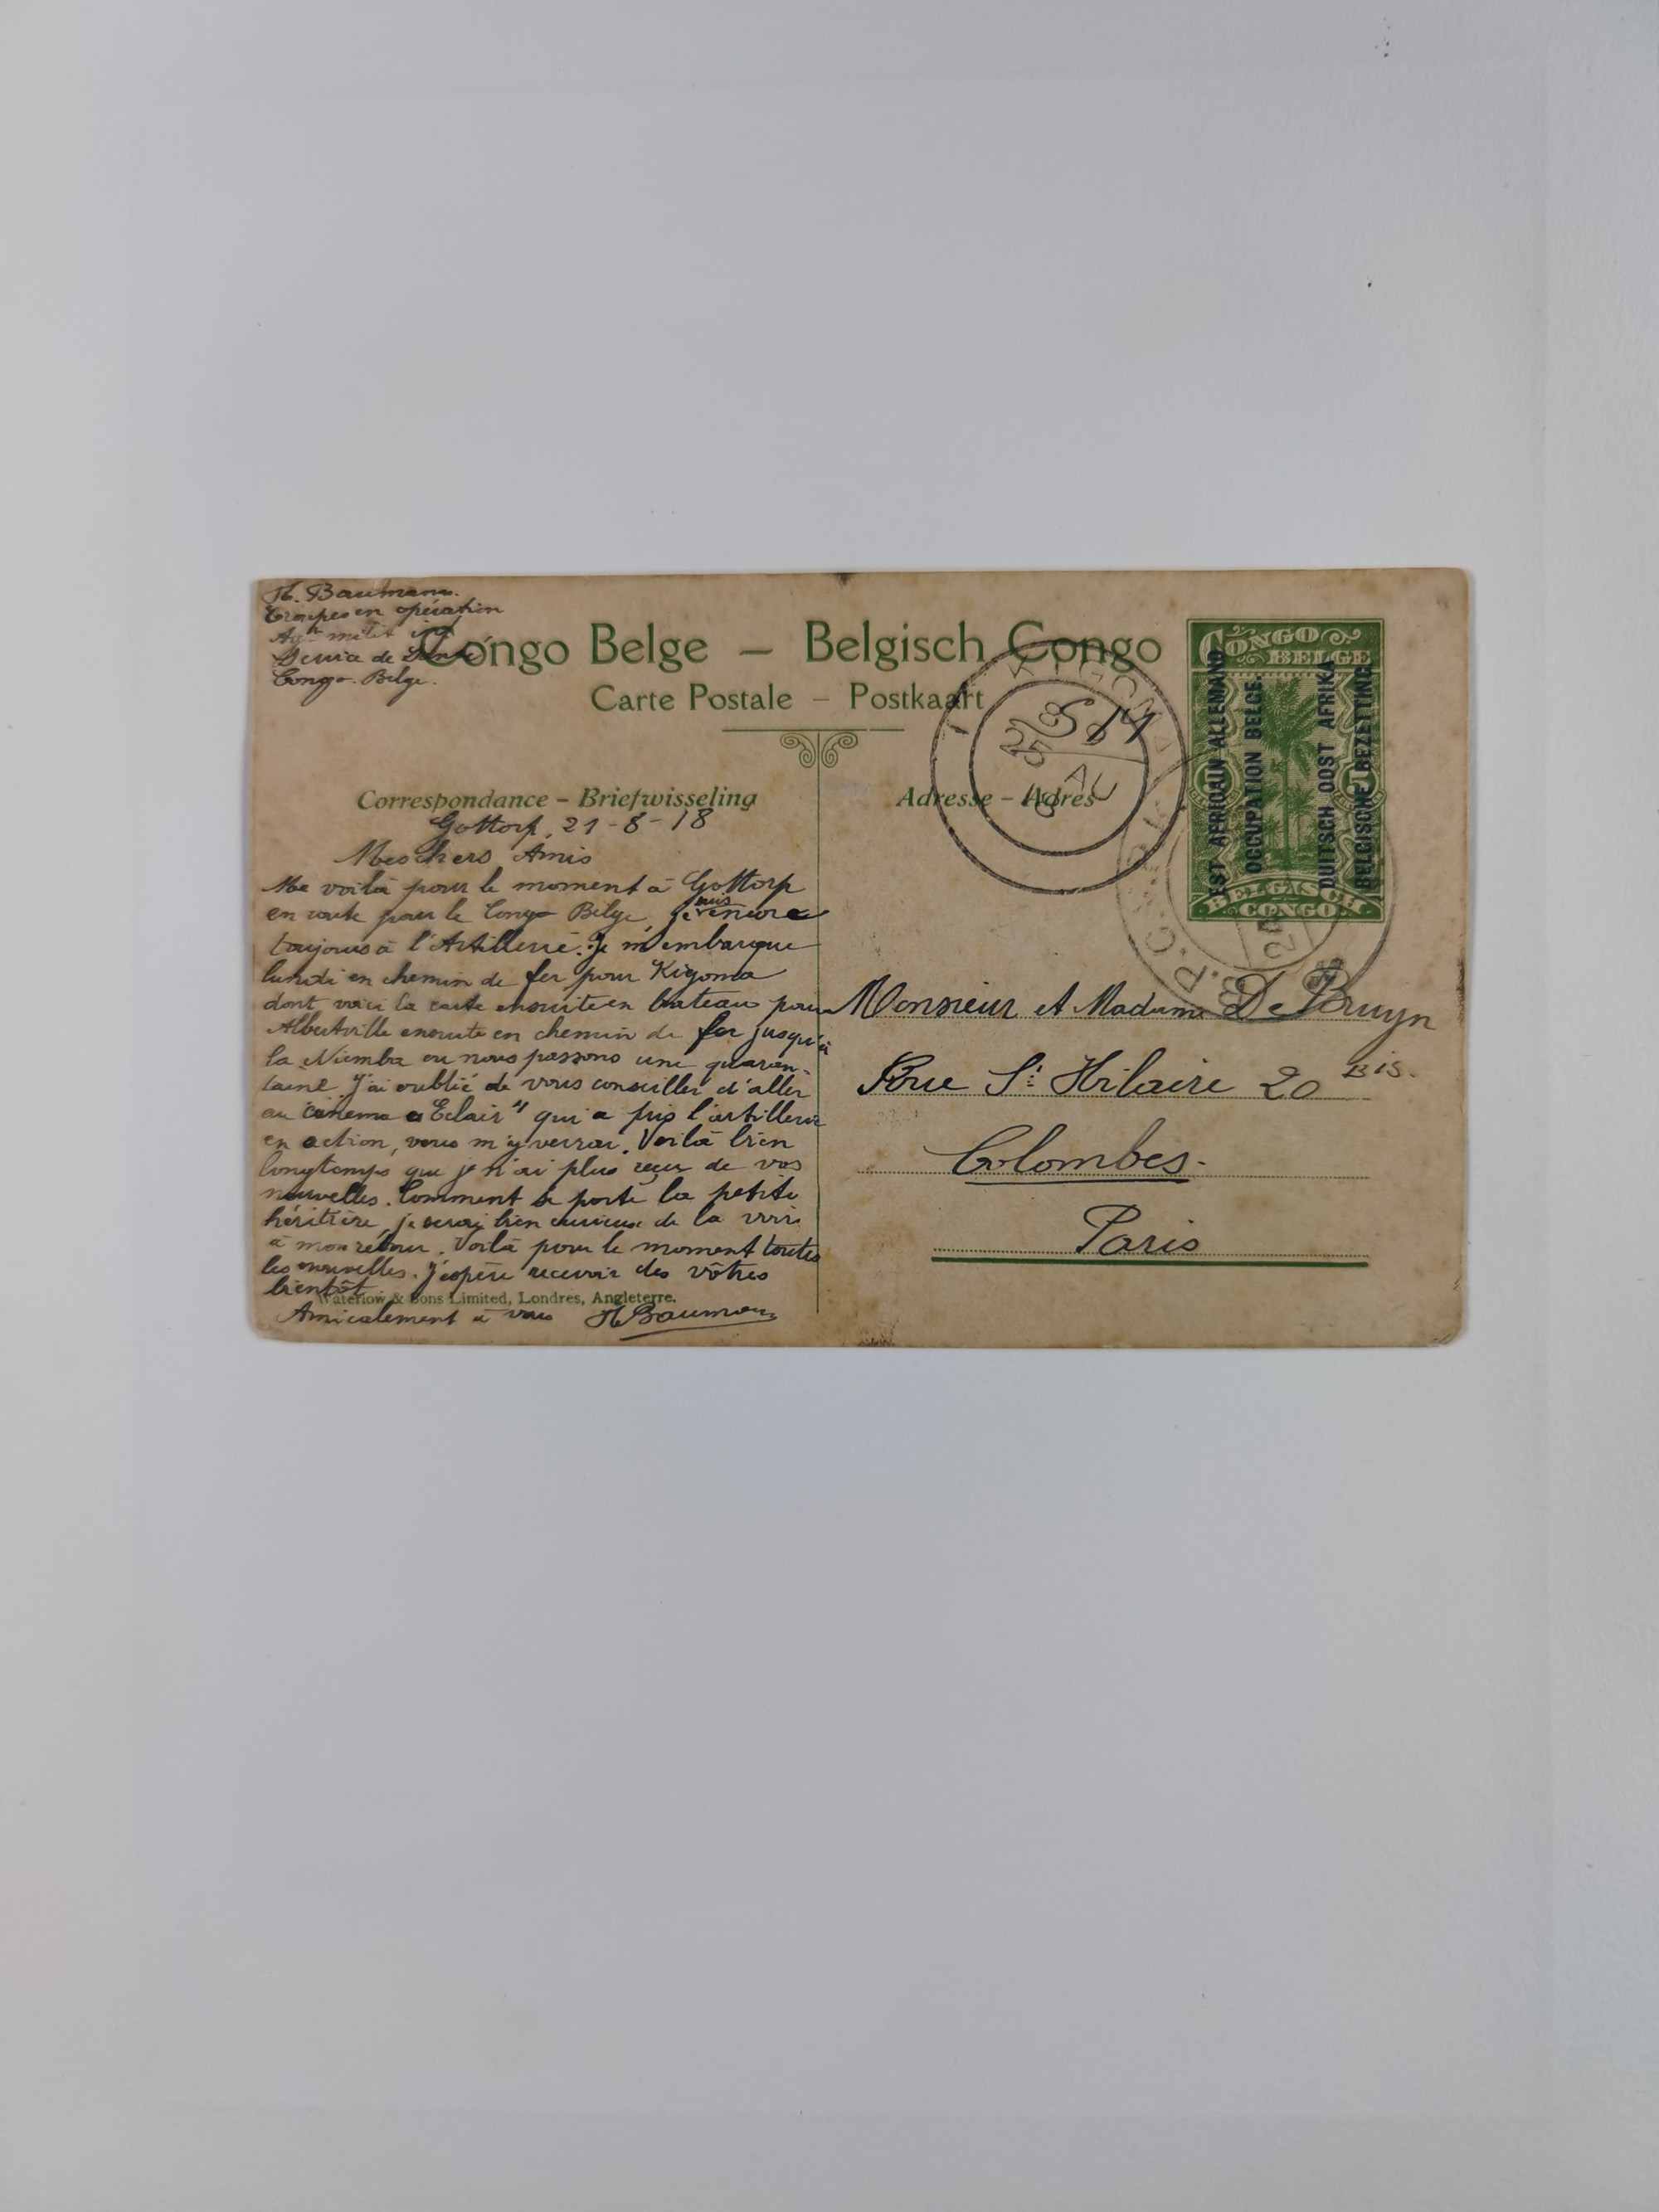 H. Baumann.
Troupes en opération
Agt milit inf
Service de Santé
Congo-Belge.
Congo Belge – Belgisch Congo
Carte Postale – Postkaart
CONGO
BELGE
EST AFRICAIN ALLEMAND
OCCUPATION BELGE.
DUITSCH OOST AFRIKA
BELGISCHE BEZETTING.
BELGISCH
CONGO
KIGOMA
514
25
AU
18
Correspondance – Briefwisseling
Adresse – Adres
Gottorp, 21-8-18
Mes chers Amis
Me voilà pour le moment à Gottorp
en route pour le Congo Belge, je suis encore
toujours à l'Artillerie. Je m'embarque
lundi en chemin de fer pour Kigoma
dont voici la carte ensuite en bateau pour
Albertville ensuite en chemin de fer jusqu'à
la Niemba ou nous passons une quaran-
taine J'ai oublié de vous conseiller d'aller
au cinema "Eclair" qui a pris l'artillerie
en action, vous m'y verrai. Voilà bien
longtemps que je n'ai plus reçu de vos
nouvelles. Comment se porte la petite
héritière, je serai bien curieux de la voir
à mon rétour. Voilà pour le moment toutes
les nouvelles. J'espère recevoir des vôtres
bientôt
Waterlow & Sons Limited, Londres, Angleterre.
Amicalement à vous H Baumann
Monsieur et Madame De Bruyn
Rue St Hilaire 20 BIS.
Colombes-
Paris